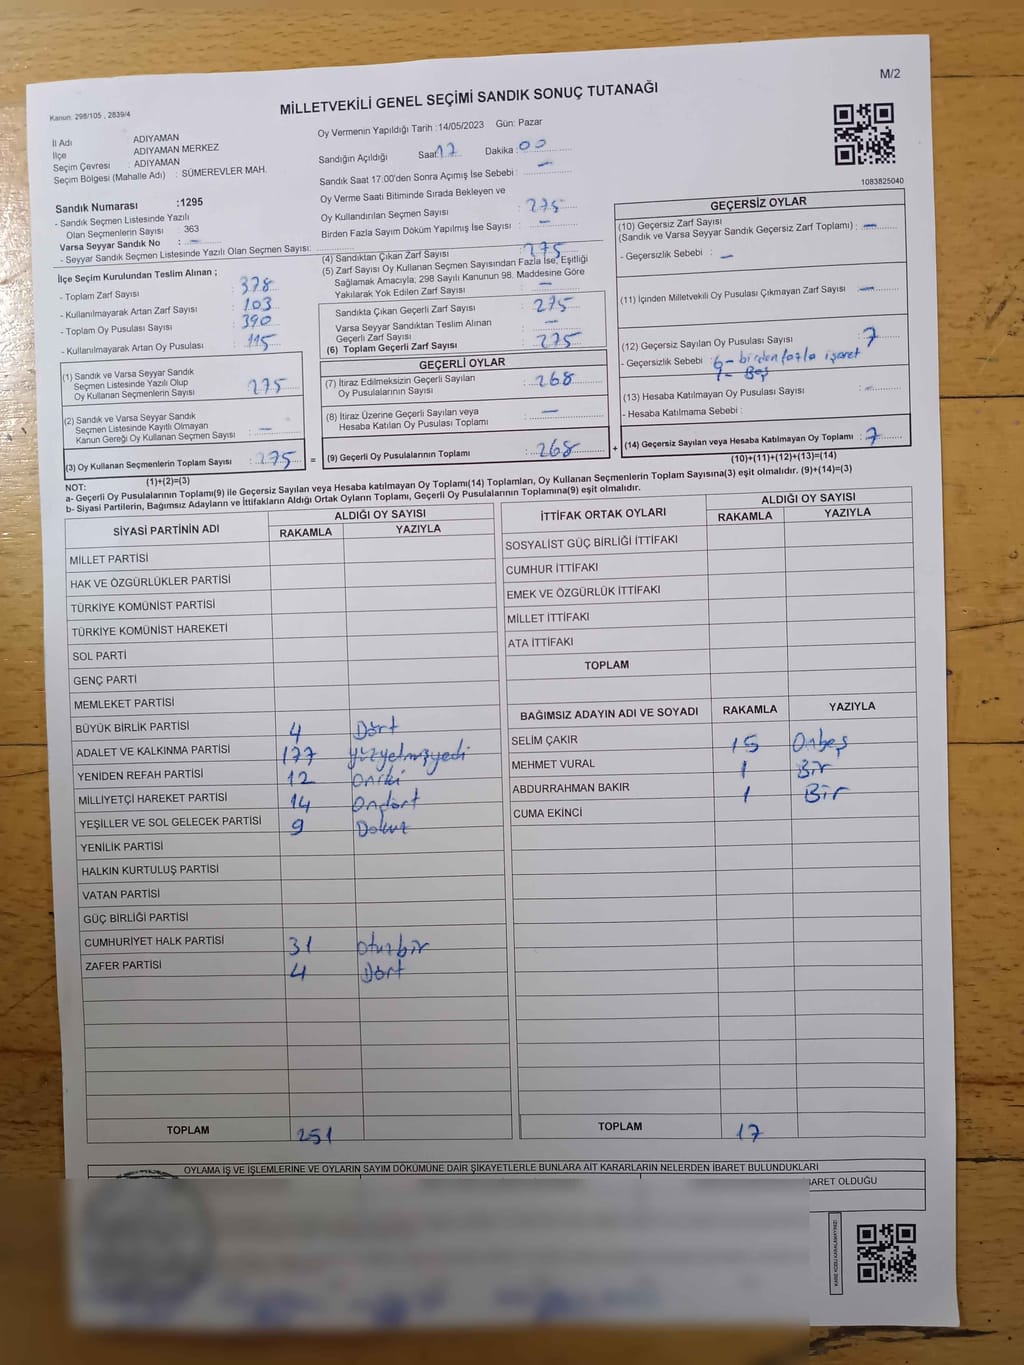 M/2
Kanun: 298/105 , 2839/4
MİLLETVEKİLİ GENEL SEÇİMİ SANDIK SONUÇ TUTANAĞI
İl Adı : ADIYAMAN
İlçe : ADIYAMAN MERKEZ
Seçim Çevresi : ADIYAMAN
Seçim Bölgesi (Mahalle Adı) : SÜMEREVLER MAH.
Sandık Numarası :1295
- Sandık Seçmen Listesinde Yazılı
Olan Seçmenlerin Sayısı : 363
Varsa Seyyar Sandık No : –
- Seyyar Sandık Seçmen Listesinde Yazılı Olan Seçmen Sayısı:
Oy Vermenin Yapıldığı Tarih :14/05/2023 Gün: Pazar
Sandığın Açıldığı Saat 17 Dakika : 00
Sandık Saat 17:00'den Sonra Açımış İse Sebebi : –
Oy Verme Saati Bitiminde Sırada Bekleyen ve
Oy Kullandırılan Seçmen Sayısı : 275
Birden Fazla Sayım Döküm Yapılmış İse Sayısı : –
1083825040
İlçe Seçim Kurulundan Teslim Alınan ;
- Toplam Zarf Sayısı : 378
- Kullanılmayarak Artan Zarf Sayısı : 103
- Toplam Oy Pusulası Sayısı : 390
- Kullanılmayarak Artan Oy Pusulası : 115
(1) Sandık ve Varsa Seyyar Sandık
Seçmen Listesinde Yazılı Olup
Oy Kullanan Seçmenlerin Sayısı : 275
(2) Sandık ve Varsa Seyyar Sandık
Seçmen Listesinde Kayıtlı Olmayan
Kanun Gereği Oy Kullanan Seçmen Sayısı : –
(3) Oy Kullanan Seçmenlerin Toplam Sayısı : 275
(1)+(2)=(3)
(4) Sandıktan Çıkan Zarf Sayısı : 275
(5) Zarf Sayısı Oy Kullanan Seçmen Sayısından Fazla İse, Eşitliği
Sağlamak Amacıyla; 298 Sayılı Kanunun 98. Maddesine Göre
Yakılarak Yok Edilen Zarf Sayısı : –
Sandıkta Çıkan Geçerli Zarf Sayısı : 275
Varsa Seyyar Sandıktan Teslim Alınan
Geçerli Zarf Sayısı : –
(6) Toplam Geçerli Zarf Sayısı : 275
GEÇERLİ OYLAR
(7) İtiraz Edilmeksizin Geçerli Sayılan
Oy Pusulalarının Sayısı : 268
(8) İtiraz Üzerine Geçerli Sayılan veya
Hesaba Katılan Oy Pusulası Toplamı : –
= (9) Geçerli Oy Pusulalarının Toplamı : 268 +
GEÇERSİZ OYLAR
(10) Geçersiz Zarf Sayısı
(Sandık ve Varsa Seyyar Sandık Geçersiz Zarf Toplamı) : –
- Geçersizlik Sebebi : –
(11) İçinden Milletvekili Oy Pusulası Çıkmayan Zarf Sayısı : –
(12) Geçersiz Sayılan Oy Pusulası Sayısı : 7
- Geçersizlik Sebebi : 6 – birden fazla işaret
1 – Boş
(13) Hesaba Katılmayan Oy Pusulası Sayısı : –
- Hesaba Katılmama Sebebi :
(14) Geçersiz Sayılan veya Hesaba Katılmayan Oy Toplamı : 7
(10)+(11)+(12)+(13)=(14)
NOT:
a- Geçerli Oy Pusulalarının Toplamı(9) ile Geçersiz Sayılan veya Hesaba katılmayan Oy Toplamı(14) Toplamları, Oy Kullanan Seçmenlerin Toplam Sayısına(3) eşit olmalıdır. (9)+(14)=(3)
b- Siyasi Partilerin, Bağımsız Adayların ve İttifakların Aldığı Ortak Oyların Toplamı, Geçerli Oy Pusulalarının Toplamına(9) eşit olmalıdır.
SİYASİ PARTİNİN ADI ALDIĞI OY SAYISI
RAKAMLA YAZIYLA
MİLLET PARTİSİ
HAK VE ÖZGÜRLÜKLER PARTİSİ
TÜRKİYE KOMÜNİST PARTİSİ
TÜRKİYE KOMÜNİST HAREKETİ
SOL PARTİ
GENÇ PARTİ
MEMLEKET PARTİSİ
BÜYÜK BİRLİK PARTİSİ 4 Dört
ADALET VE KALKINMA PARTİSİ 177 yüzyetmişyedi
YENİDEN REFAH PARTİSİ 12 Oniki
MİLLİYETÇİ HAREKET PARTİSİ 14 Ondört
YEŞİLLER VE SOL GELECEK PARTİSİ 9 Dokuz
YENİLİK PARTİSİ
HALKIN KURTULUŞ PARTİSİ
VATAN PARTİSİ
GÜÇ BİRLİĞİ PARTİSİ
CUMHURİYET HALK PARTİSİ 31 Oturbir
ZAFER PARTİSİ 4 Dört
TOPLAM 251
İTTİFAK ORTAK OYLARI ALDIĞI OY SAYISI
RAKAMLA YAZIYLA
SOSYALİST GÜÇ BİRLİĞİ İTTİFAKI
CUMHUR İTTİFAKI
EMEK VE ÖZGÜRLÜK İTTİFAKI
MİLLET İTTİFAKI
ATA İTTİFAKI
TOPLAM
BAĞIMSIZ ADAYIN ADI VE SOYADI RAKAMLA YAZIYLA
SELİM ÇAKIR 15 Onbeş
MEHMET VURAL 1 Bir
ABDURRAHMAN BAKIR 1 Bir
CUMA EKİNCİ
TOPLAM 17
OYLAMA İŞ VE İŞLEMLERİNE VE OYLARIN SAYIM DÖKÜMÜNE DAİR ŞİKAYETLERLE BUNLARA AİT KARARLARIN NELERDEN İBARET BULUNDUKLARI
İBARET OLDUĞU
KARE KODU KARALAMAYINIZ!